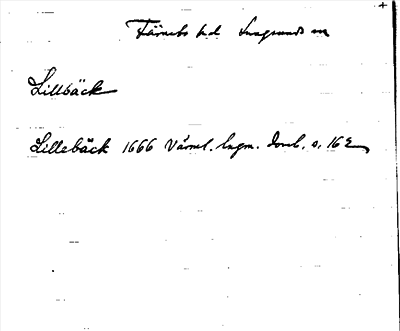 +
Färnebo hd Lungsunds sn
Lillbäck
Lillebäck 1666 Värml. lngm. domb. s. 162